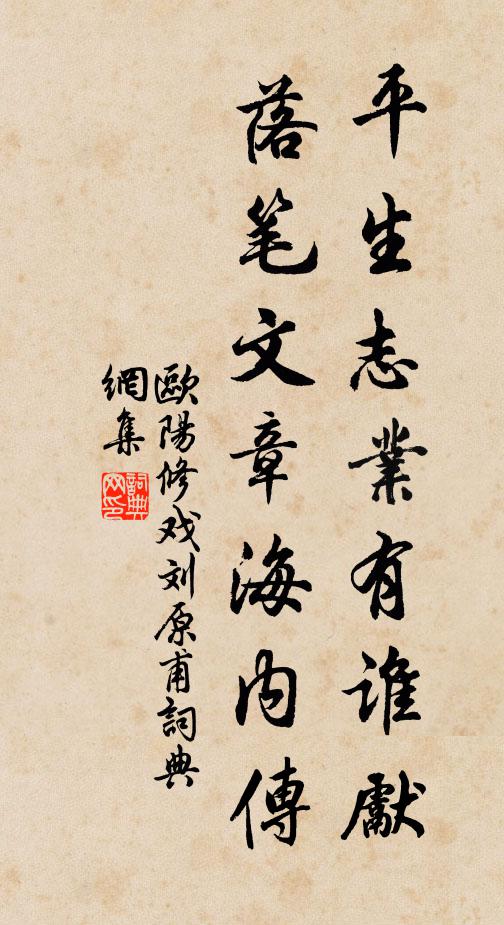 平生志業有誰獻
落笔文章海内傳
歐陽修戏刘原甫詞典
網集
詞典
网印